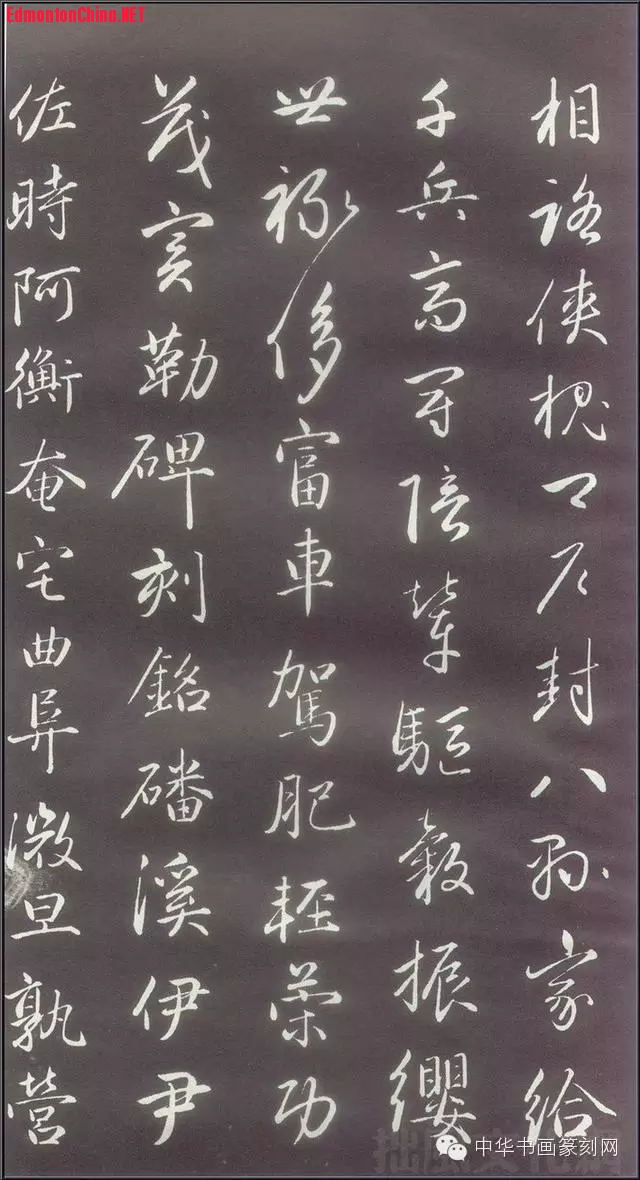 EdmontonChina.NET
相路俠槐卿户封八縣家給
千兵高冠陪輦驅轂振纓
世祿侈富車駕肥輕策功
茂實勒碑刻銘磻溪伊尹
佐時阿衡奄宅曲阜微旦孰營
中华书画篆刻网